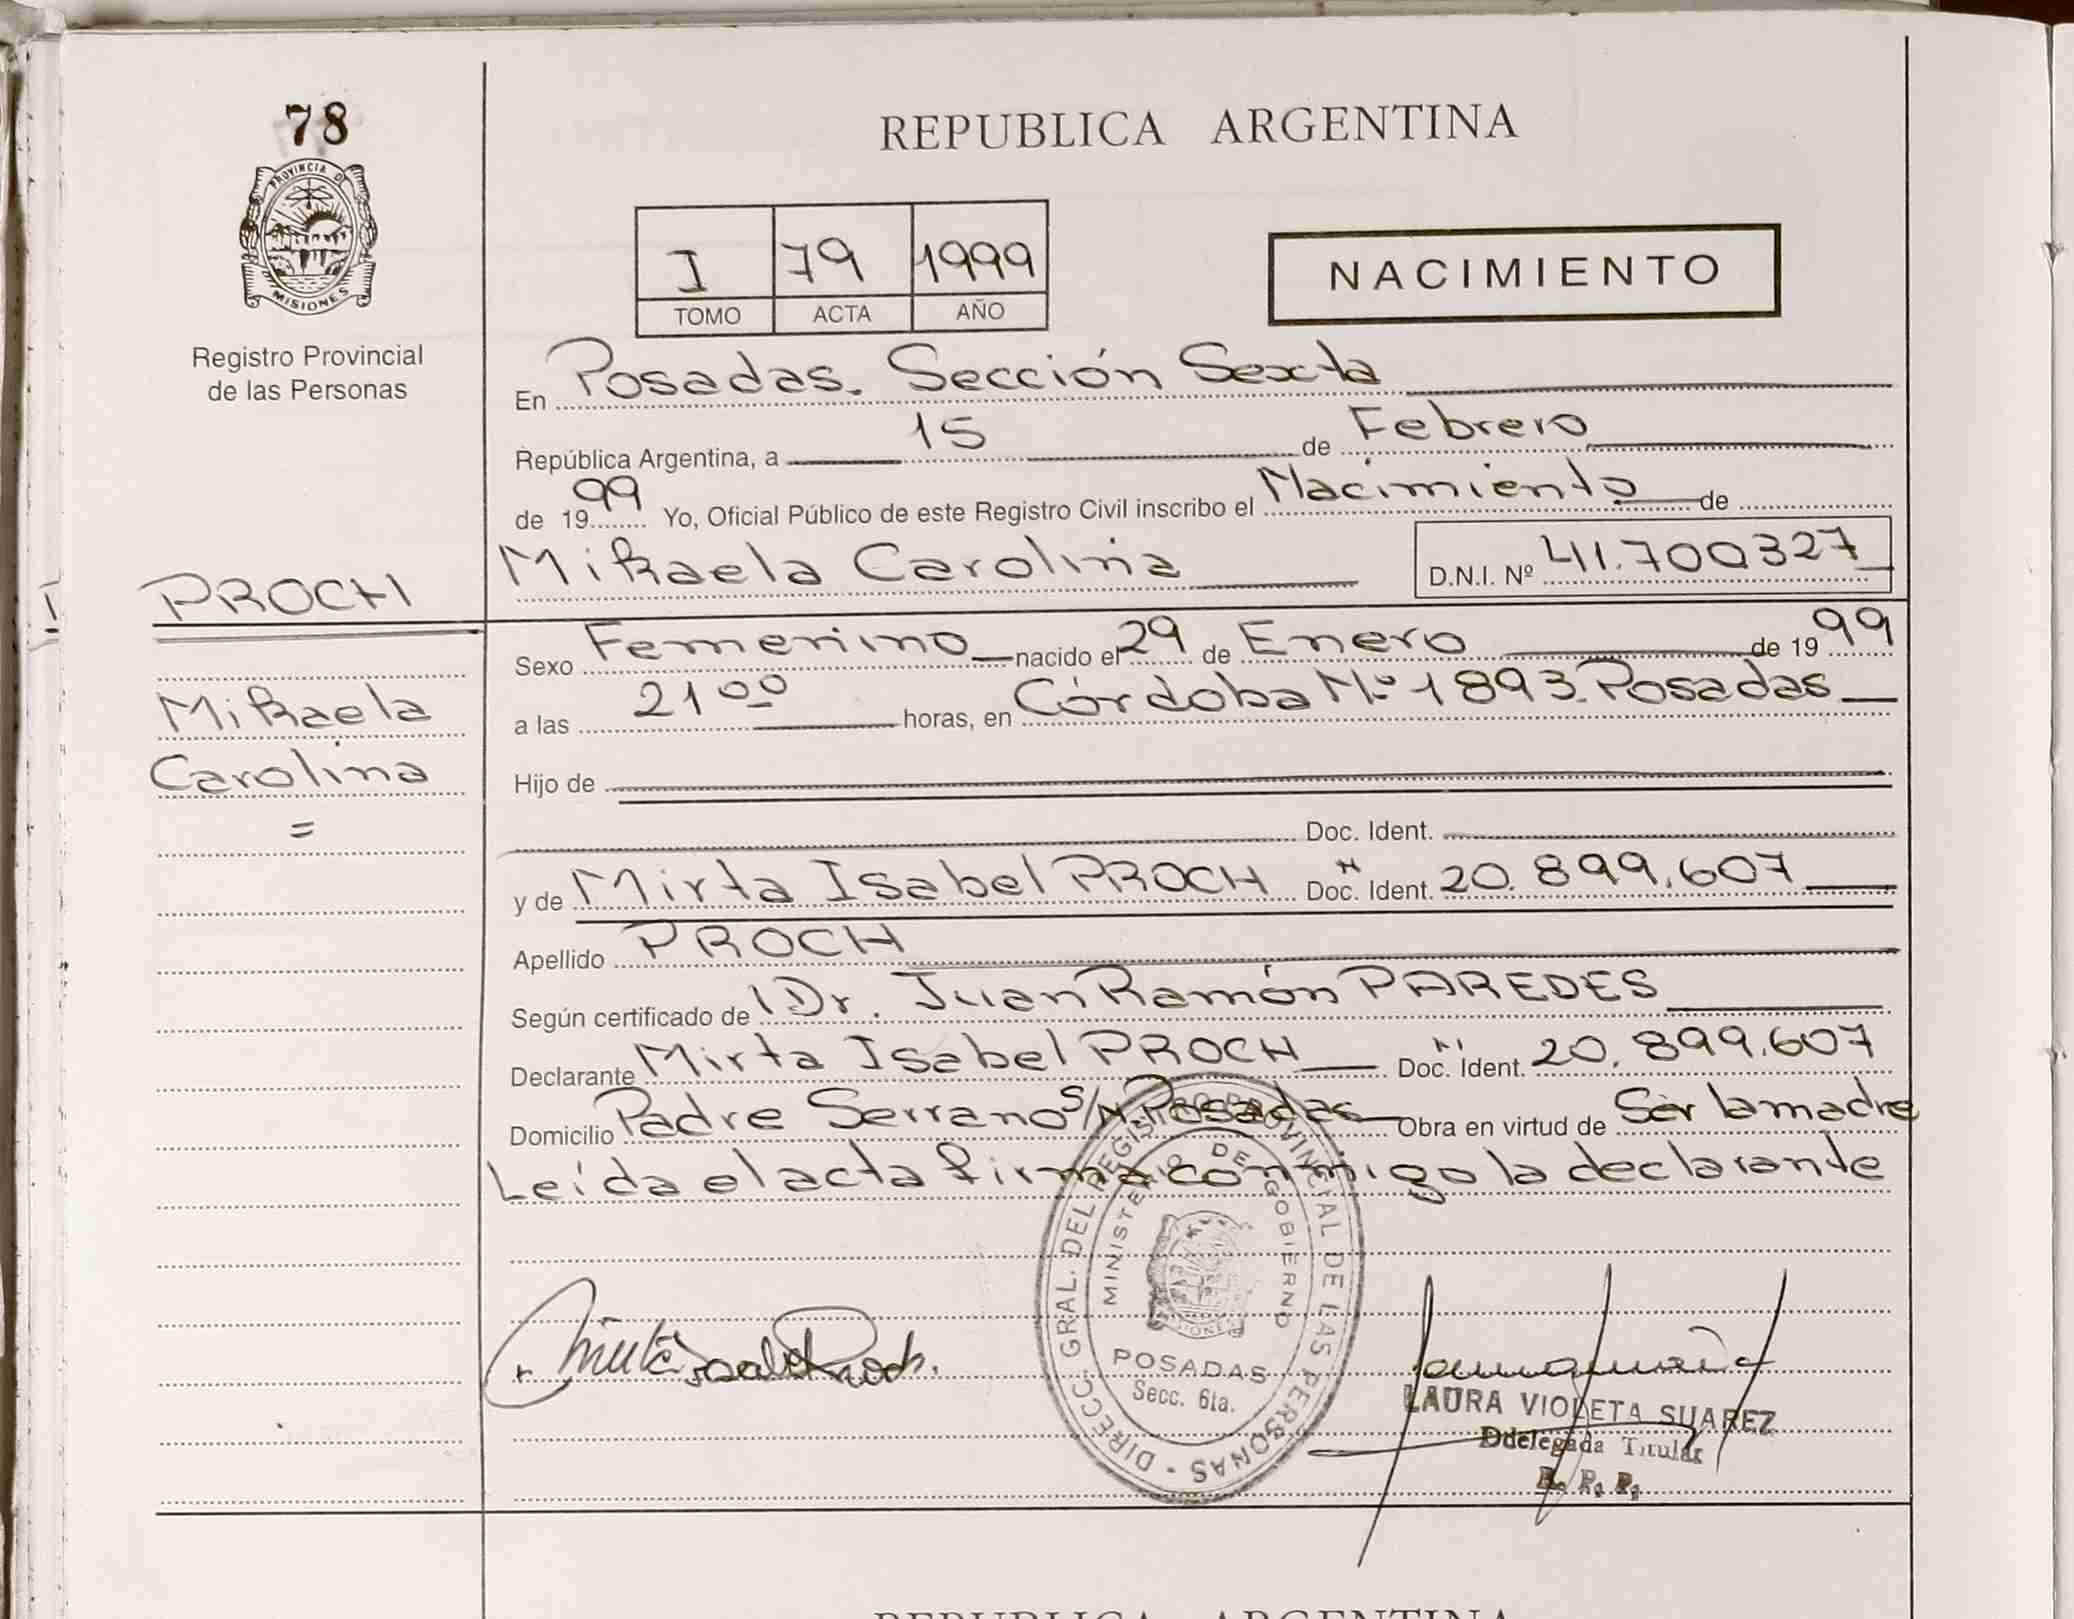 78
PROVINCIA D
MISIONES
Registro Provincial
de las Personas
REPUBLICA ARGENTINA
I 79 1999
TOMO ACTA AÑO
NACIMIENTO
En Posadas. Sección Sexta
República Argentina, a 15 de Febrero
de 1999 Yo, Oficial Público de este Registro Civil inscribo el Nacimiento de
Mikaela Carolina D.N.I. Nº 41.700327
PROCH
Mikaela
Carolina
=
Sexo Femenino nacido el 29 de Enero de 1999
a las 21 00 horas, en Córdoba Nº 1893. Posadas
Hijo de
Doc. Ident.
y de Mirta Isabel PROCH Doc. Ident. 20.899.607
Apellido PROCH
Según certificado de Dr. Juan Ramón PAREDES
Declarante Mirta Isabel PROCH Doc. Ident. 20.899.607
Domicilio Padre Serrano S/N. Posadas Obra en virtud de Ser la madre
Leída el acta firma conmigo la declarante
DIRECC. GRAL. DEL REGISTRO PROVINCIAL DE LAS PERSONAS -
MINISTERIO DE GOBIERNO
MISIONES
POSADAS
Secc. 6ta.
Mirta Isabel Proch.
LAURA VIOLETA SUAREZ
Ddelegada Titular
R. P. P.
REPUBLICA ARGENTINA